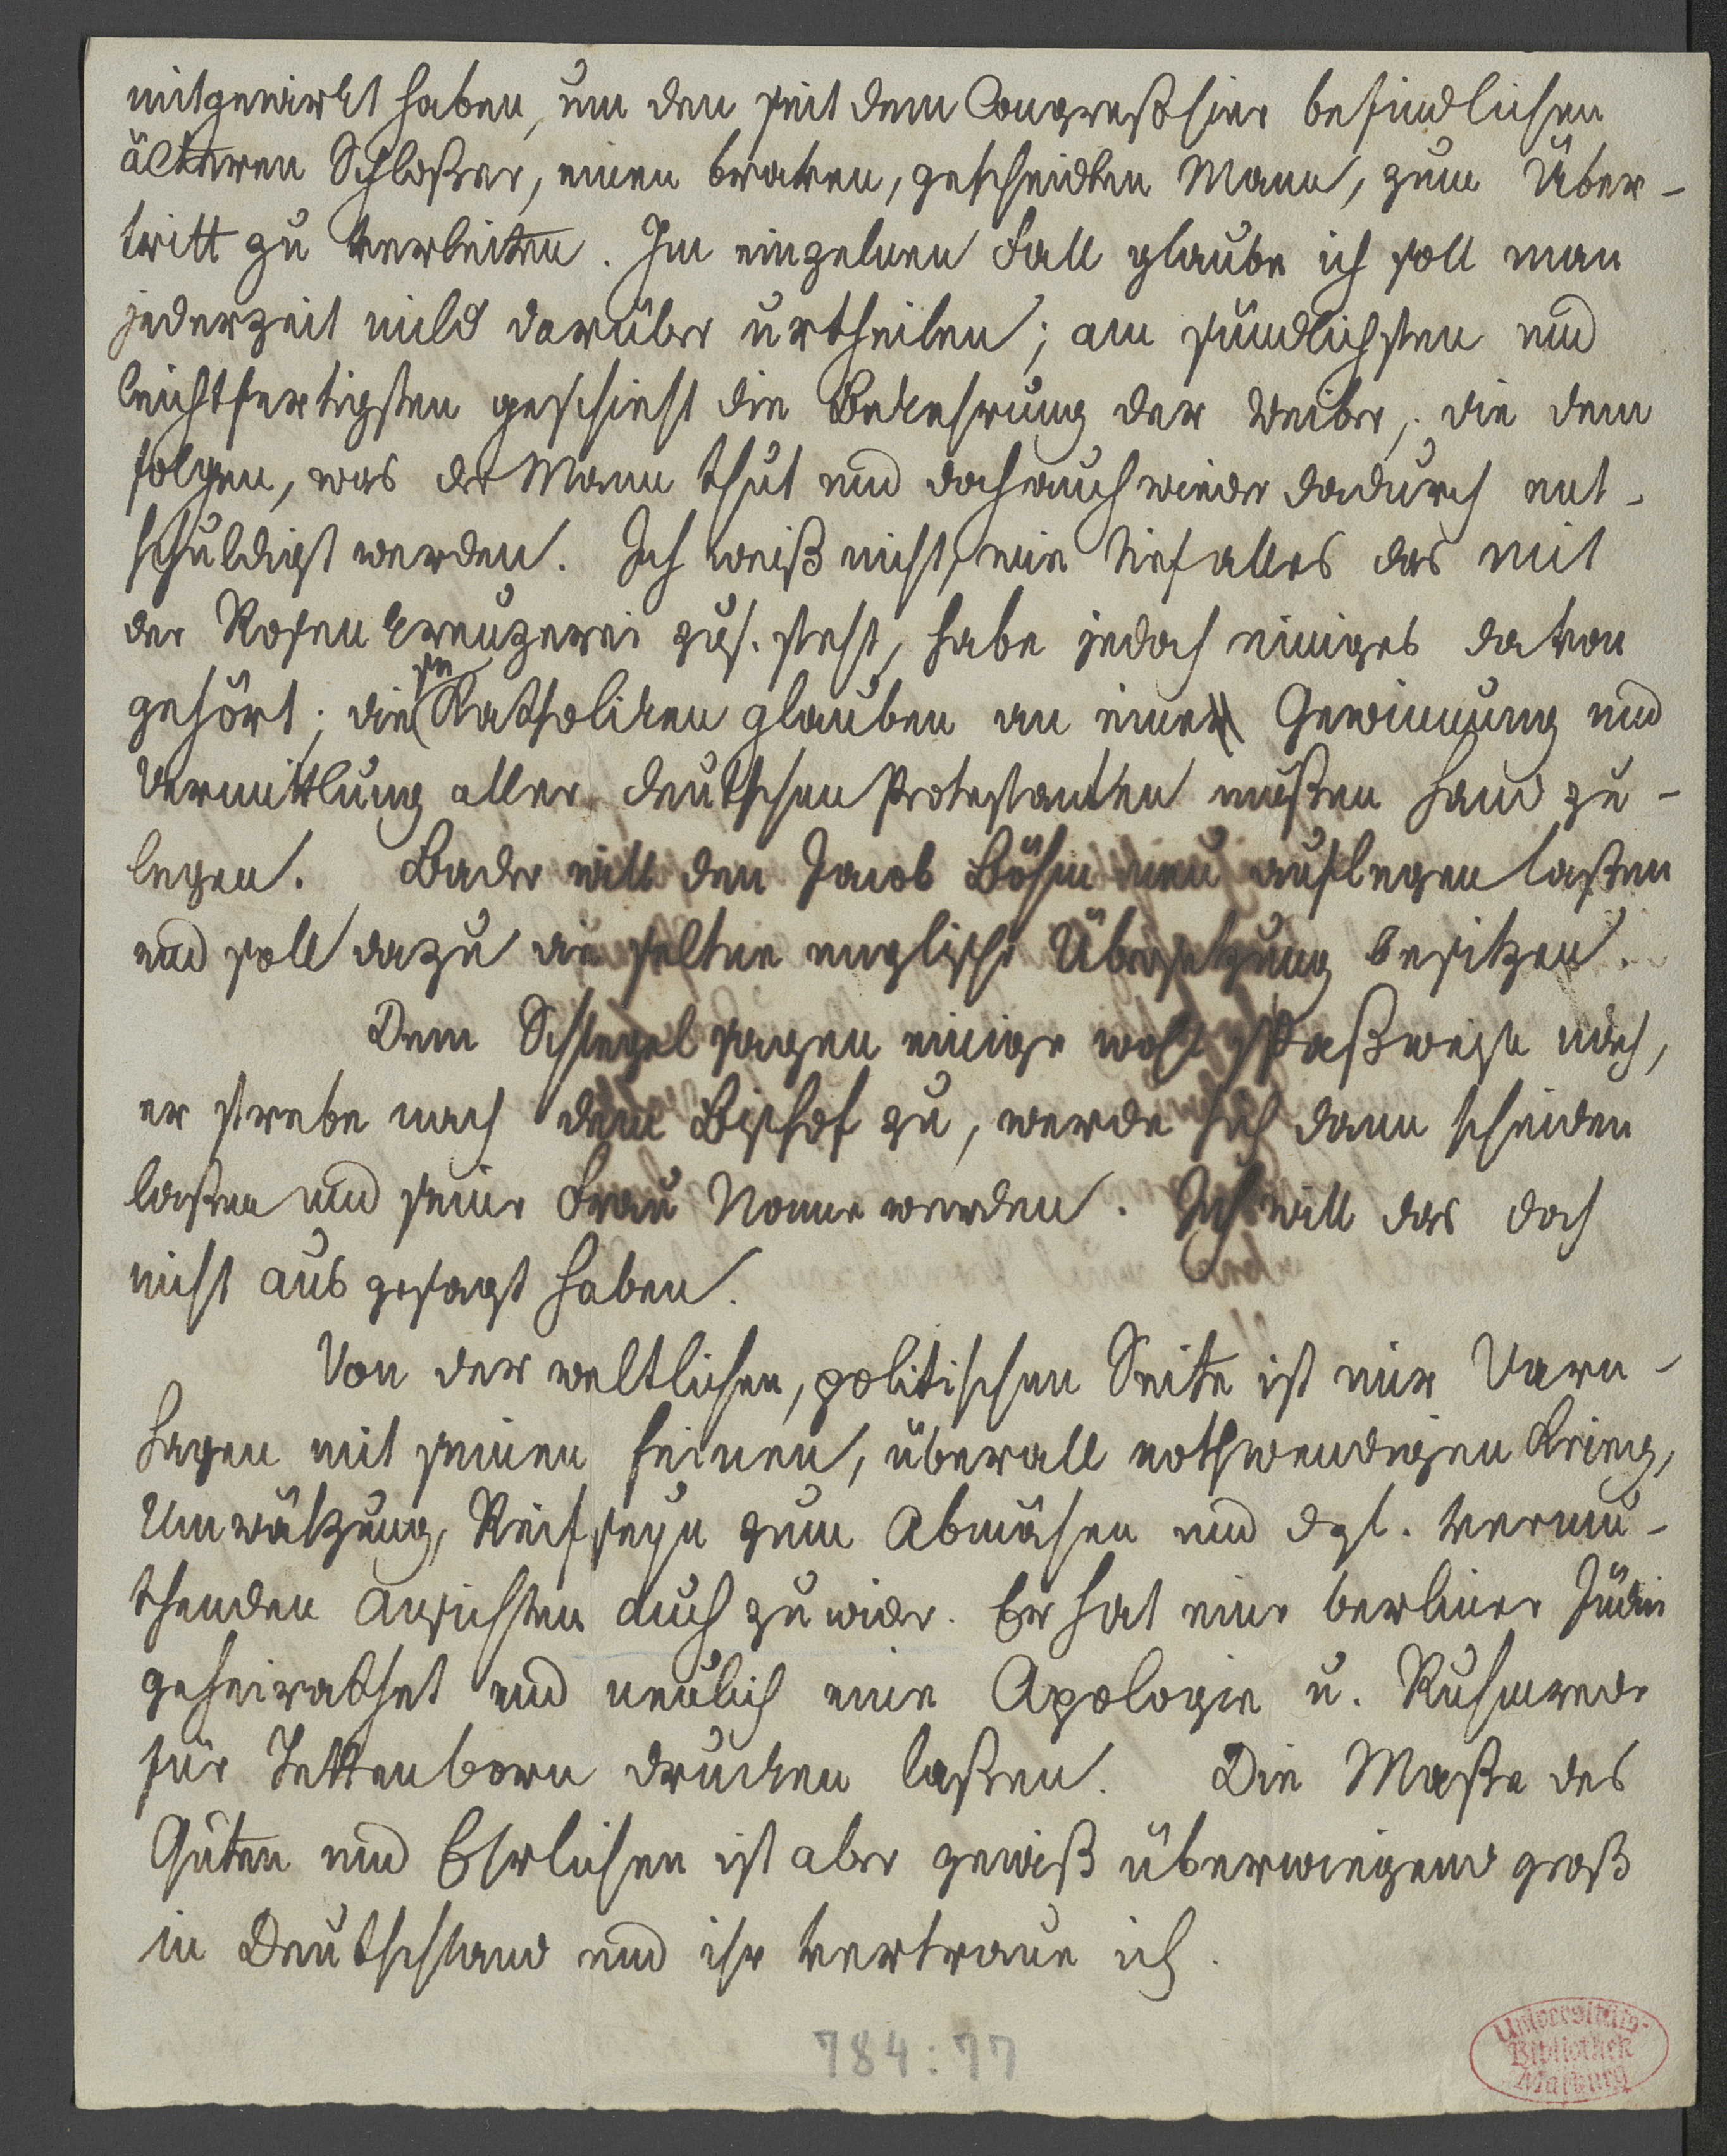 mitgewirkt haben, um den seit dem Congreß hier befindlichen
älteren Schloßer, einen braven, gescheidten Mann, zum Über-
tritt zu verleiten. Im einzelnen Fall glaube ich soll man
jederzeit mild darüber urtheilen; am sündlichsten und
leichtfertigsten geschieht die Bekehrung der Weiber, die dem
folgen, was der Mann thut und doch auch wieder dadurch ent-
schuldigt werden. Ich weiß nicht, wie tief alles das mit
der Rosenkreuzerei zus. steht, habe jedoch einiges davon
gehört; die Katholiken glauben an eine Gewinnung und
Vermittlung aller deutschen Protestanten müßen Hand zu-
legen. Bader will den Jacob Böhm neu auflegen laßen
und soll dazu die seltne englische Übersetzung besitzen.
Dem Schlegel sagen einige wohl spaßweise nach,
er strebe nach dem Bischof zu, werde sich dann scheiden
laßen und seine Frau Nonne werden. Ich will das doch
nicht ausgesagt haben.
Von der weltlichen, politischen Seite ist mir Varn-
hagen mit seinen feinen, überall nothwendigen Krieg,
Umwälzung, Reifseyn zum Abmähen und dgl. vermu-
thenden Ansichten auch zuwider. Er hat eine berliner Jüdin
geheirathet und neulich eine Apologie u. Ruhmrede
für Tettenborn drucken laßen. Die Maße des
Guten und Ehrlichen ist aber gewiß überwiegend groß
in Deutschland und ihr vertraue ich.
784:77
Universitäts-
Bibliothek
Marburg